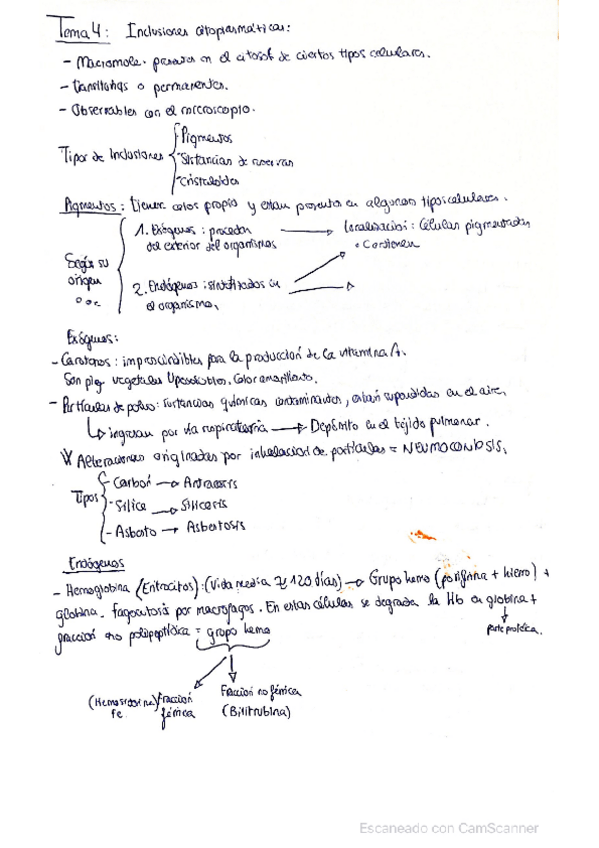 Tema 4: Inclusiones citoplasmáticas:
- Macromole. presentes en el citosol de ciertos tipos celulares.
- transitorias o permanentes.
- Observables con el microscopio.
Tipos de Inclusiones
- Pigmentos
- Sustancias de reservas
- Cristaloides
Pigmentos: tienen color propio y estan presentes en algunos tipos celulares.
Según su origen
1. Exógenos: proceden del exterior del organismos
Localización: Células pigmentadas
2. Endógenos: sintetizados en el organismo.
Exógenos:
- Carotenos: imprescindibles para la producción de la vitamina A.
Son pig. vegetales liposolubles. Color amarillento.
- Partículas de polvo: sustancias químicas contaminantes, están suspendidas en el aire.
ingresan por vía respiratoria → Depósito en el tejido pulmonar.
Alteraciones originadas por inhalación de partículas = NEUMOCONIOSIS.
Tipos
- Carbón → Antracosis
- Sílice → Silicosis
- Asbesto → Asbestosis
Endógenos
- Hemoglobina (Eritrocitos): (Vida media ≈ 120 días) → Grupo hemo (porfirina + hierro) +
globina. fagocitosis por macrófagos. En estas células se degrada la Hb en globina +
fracción no polipeptídica = grupo hemo
parte proteica.
(Hemosiderina) Fracción
Fe férrica
Fracción no férrica
(Bilirrubina)
Escaneado con CamScanner